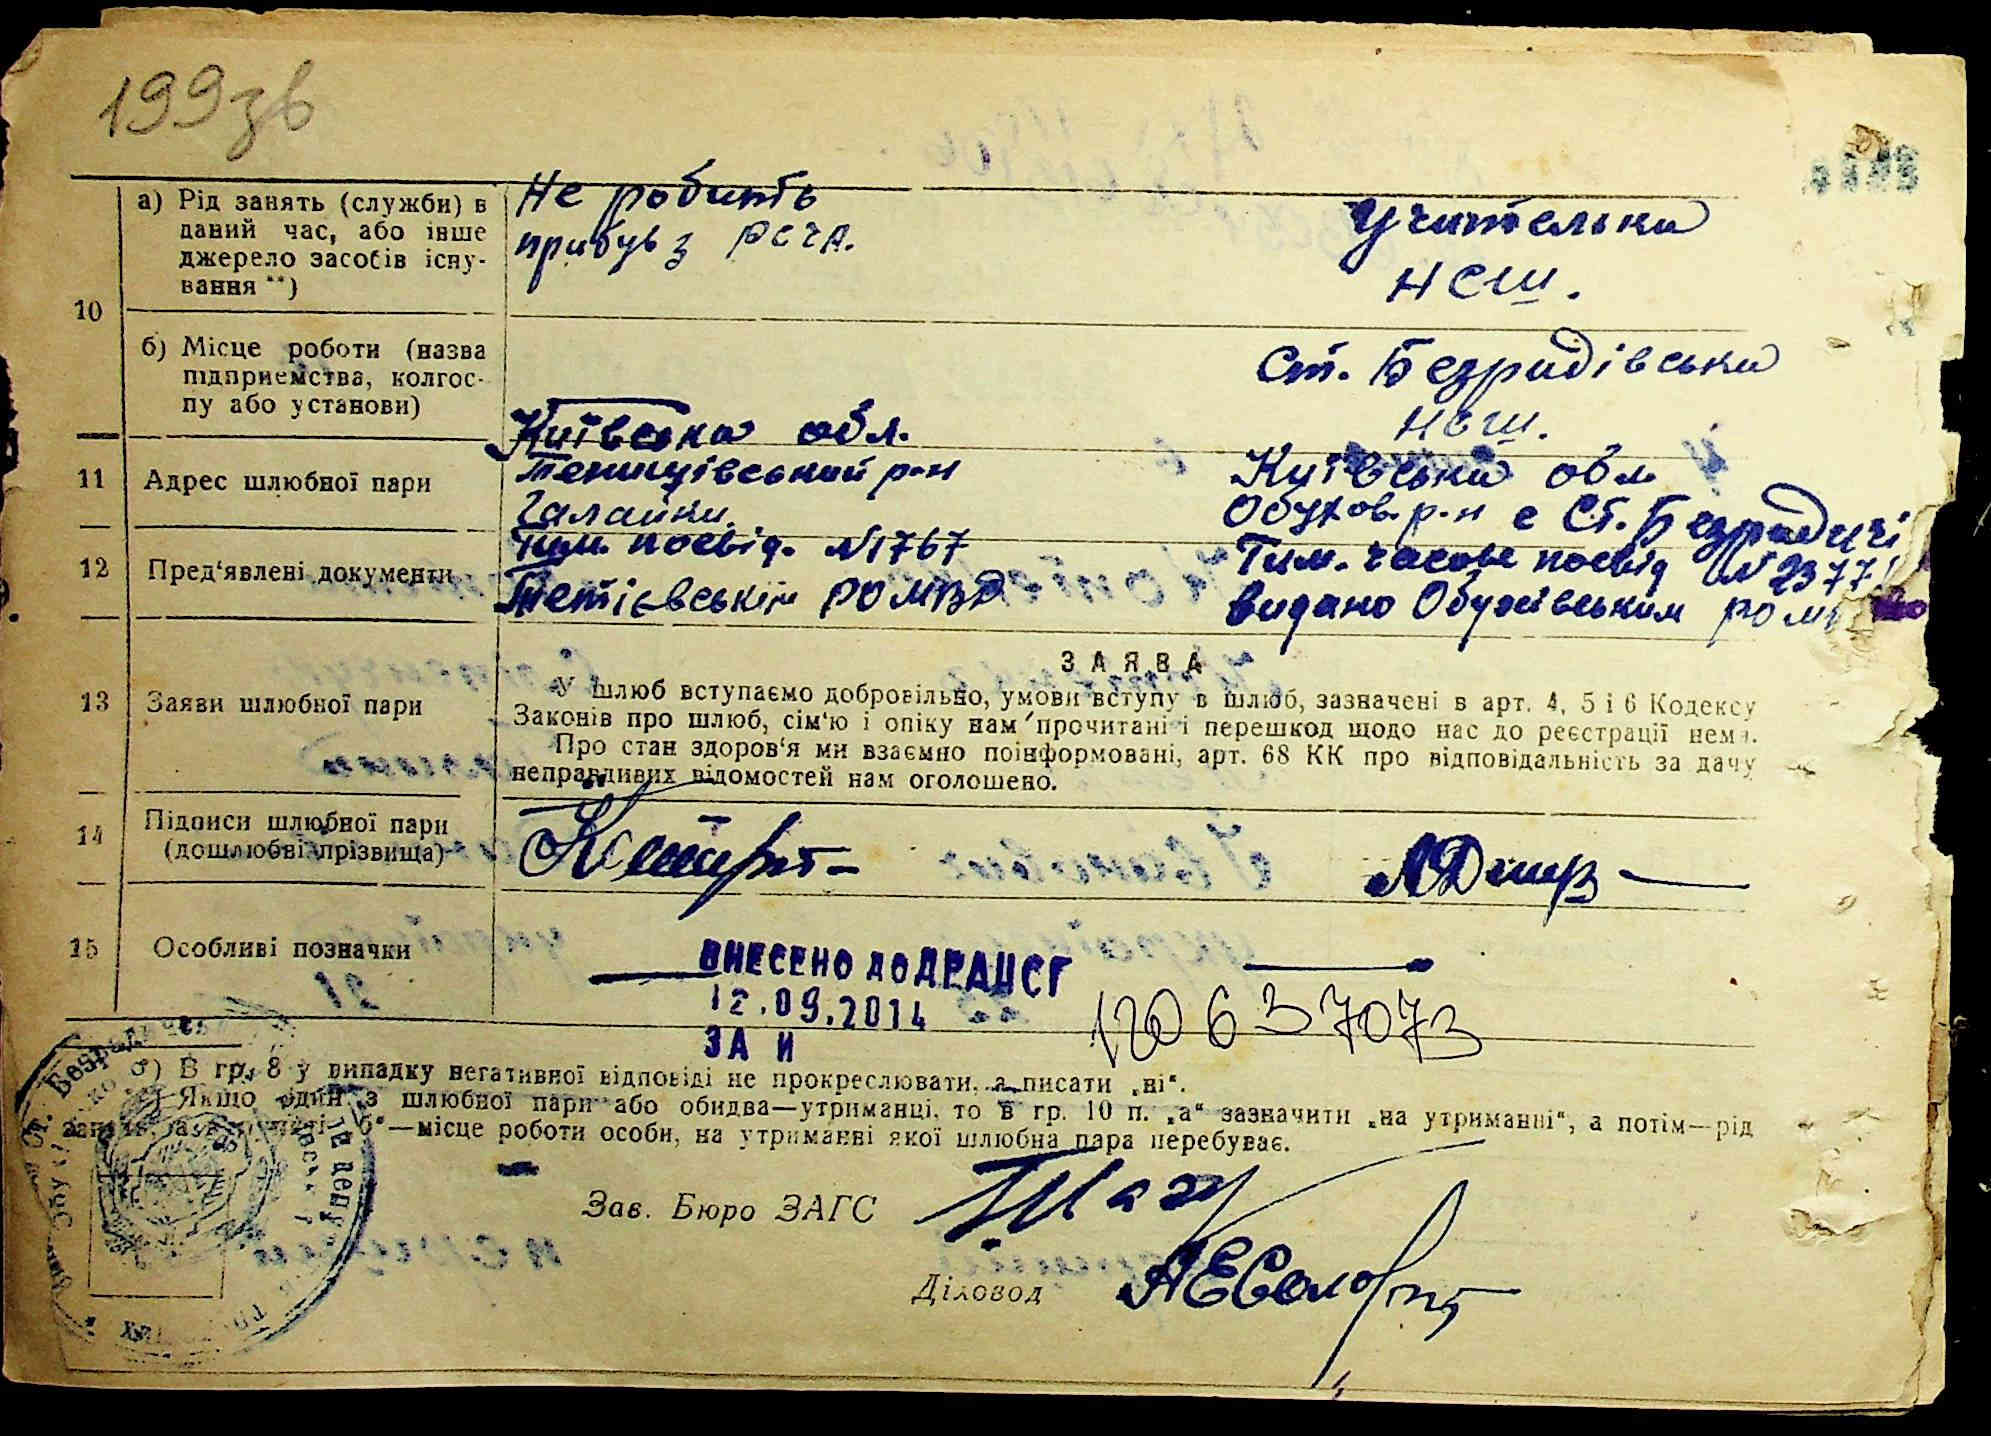 199зв
10
а) Рід занять (служби) в
даний час, або інше
джерело засобів існу-
вання **)
Не робить
прибув з РСЧА.
Учителька
НСШ.
б) Місце роботи (назва
підприємства, колгос-
пу або установи)
Ст. Безрадівська
НСШ.
11
Адрес шлюбної пари
Київська обл.
р-н
Галайки
Київська обл.
Обухов. р-н с Ст. Безрадичі
12
Пред'явлені документи
Тим. посвід. №1767
Тетіївським РОМВД
Тим. часове посвід №2377
видано Обухівським РОМ
13
Заяви шлюбної пари
ЗАЯВА
У шлюб вступаємо добровільно, умови вступу в шлюб, зазначені в арт. 4, 5 і 6 Кодексу
Законів про шлюб, сім'ю і опіку нам прочитані і перешкод щодо нас до реєстрації нема.
Про стан здоров'я ми взаємно поінформовані, арт. 68 КК про відповідальність за дачу
неправдивих відомостей нам оголошено.
14
Підписи шлюбної пари
(дошлюбні прізвища)
15
Особливі позначки
ВНЕСЕНО ДО ДРАЦСГ
12.09.2014
ЗА №
120637073
*) В гр. 8 у випадку негативної відповіді не прокреслювати, а писати „ні“.
**) Якщо один з шлюбної пари або обидва—утриманці, то в гр. 10 п. „а“ зазначити „на утриманні“, а потім—рід
занять, а в пункті „б“—місце роботи особи, на утриманні якої шлюбна пара перебуває.
Зав. Бюро ЗАГС
Діловод